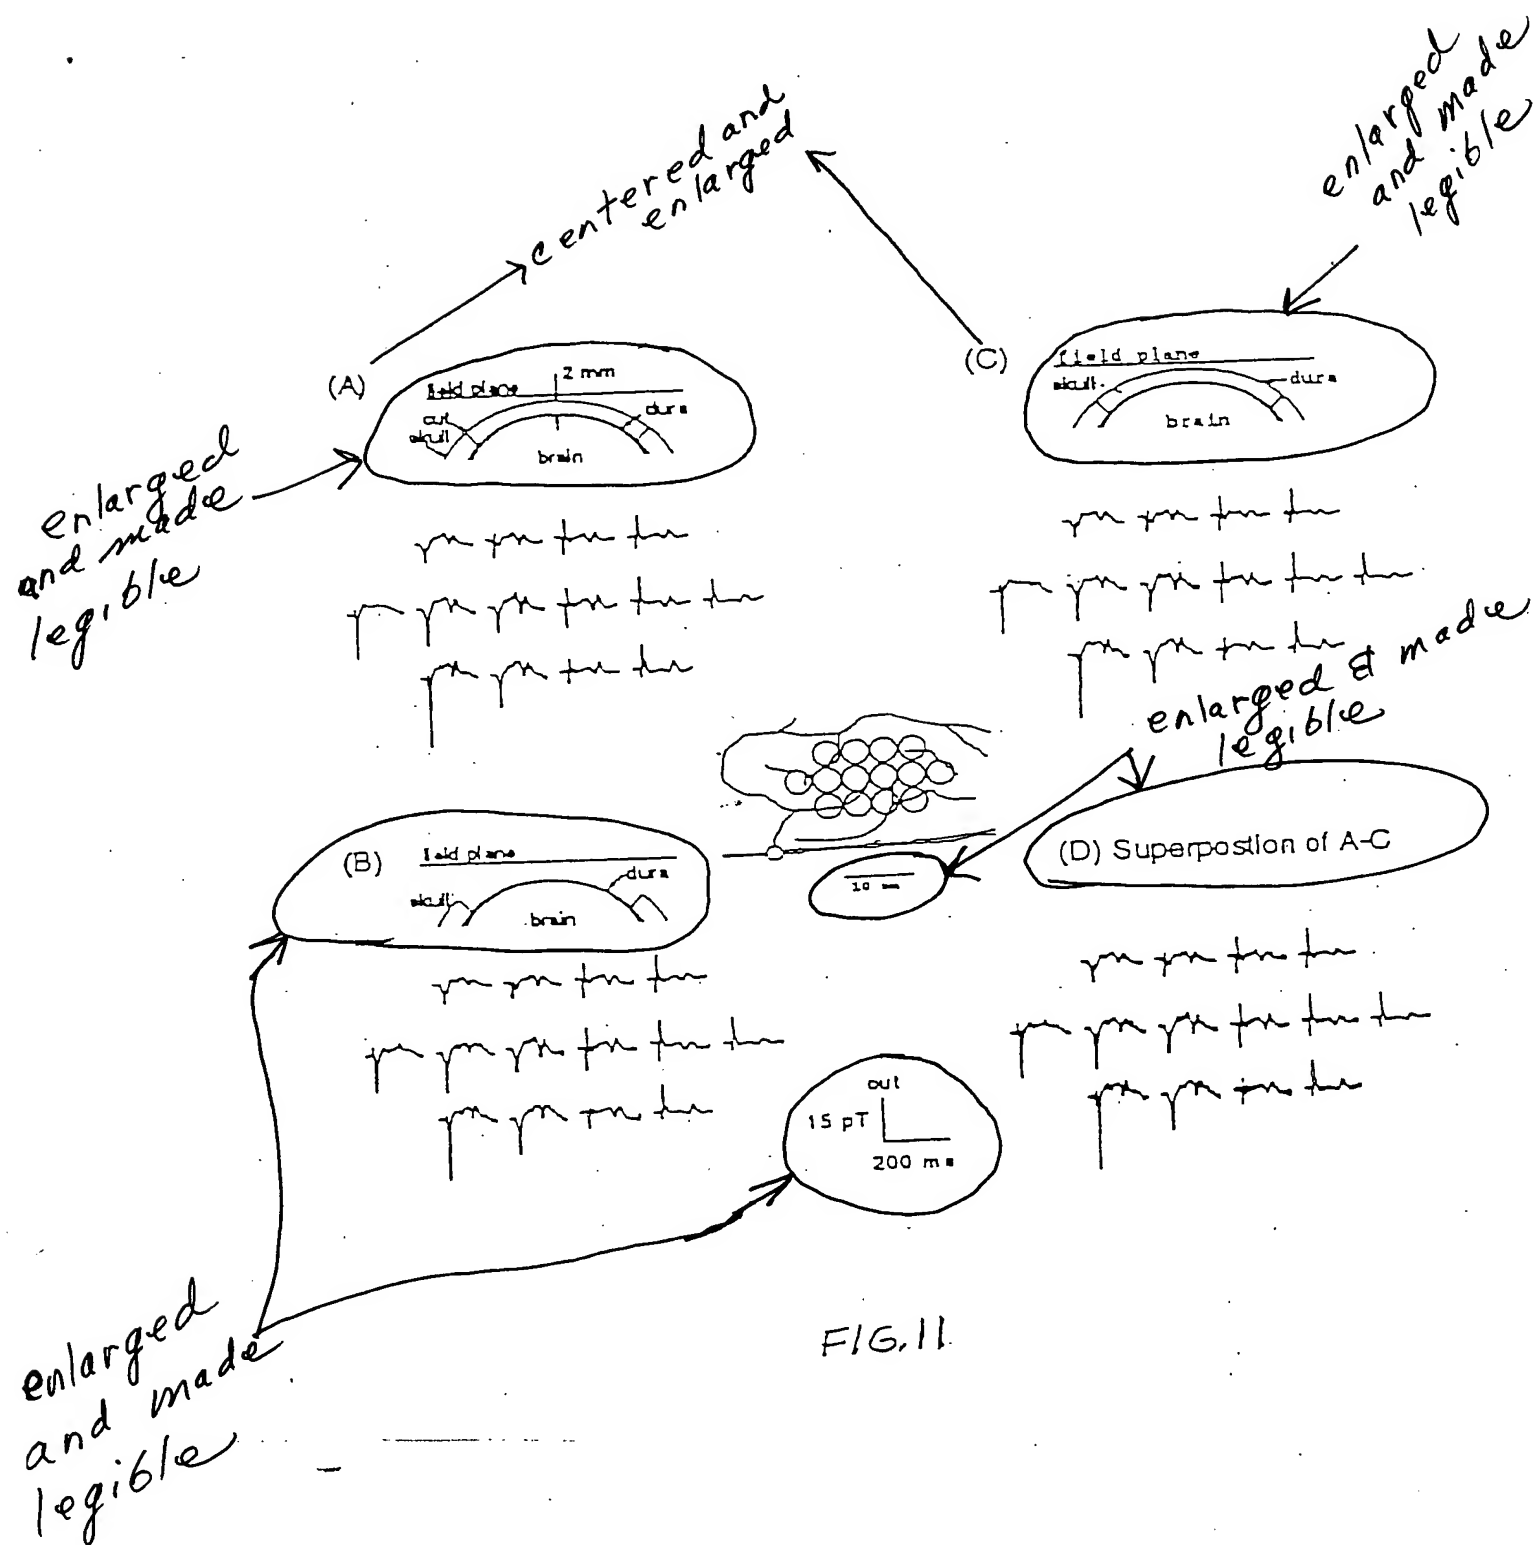 centered and
enlarged
enlarged
and made
legible
(A)
field plane
2 mm
cut
skull
dura
brain
(C)
field plane
skull
dura
brain
enlarged
and made
legible
enlarged & made
legible
(B)
field plane
skull
dura
brain
10
(D) Superpostion of A-C
out
15 pT
200 ms
enlarged
and made
legible
FIG.11.